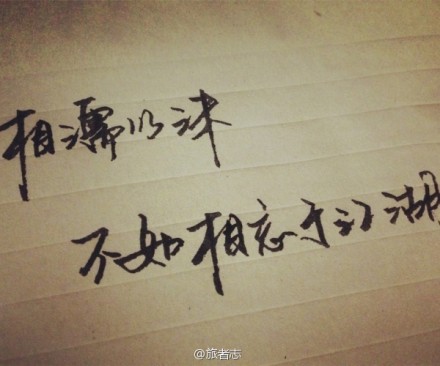 相濡以沫
不如相忘于江湖
@旅者志